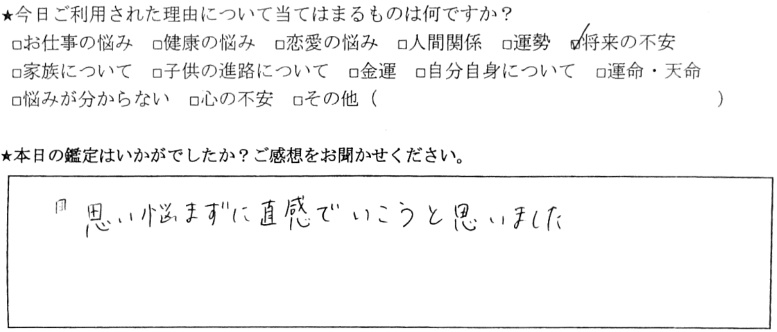 ★今日ご利用された理由について当てはまるものは何ですか？
□お仕事の悩み □健康の悩み □恋愛の悩み □人間関係 □運勢 ☑将来の不安
□家族について □子供の進路について □金運 □自分自身について □運命・天命
□悩みが分からない □心の不安 □その他（　　　）
★本日の鑑定はいかがでしたか？ご感想をお聞かせください。
思い悩まずに直感でいこうと思いました